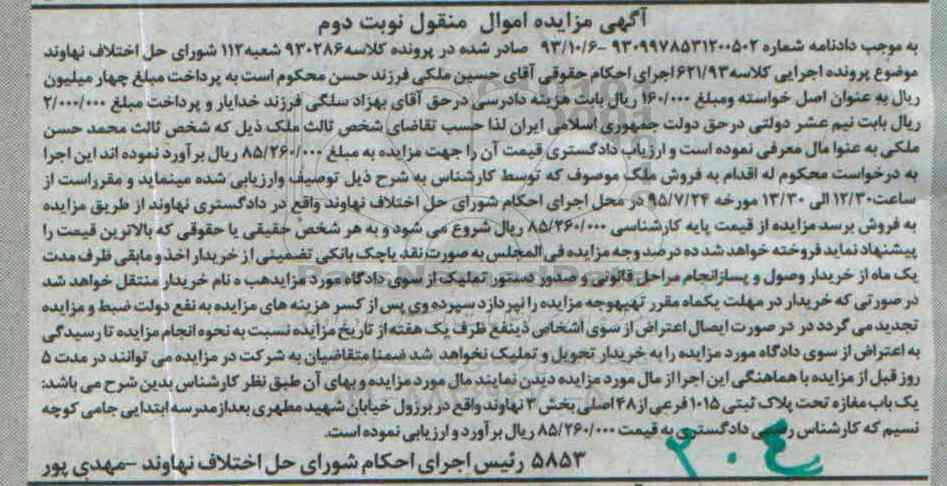 آگهی مزایده اموال منقول نوبت دوم
به موجب دادنامه شماره ۹۳۰۹۹۷۸۵۳۱۲۰۰۵۰۲ -۹۳/۱۰/۶ صادر شده در پرونده کلاسه ۹۳۰۲۸۶ شعبه ۱۱۲ شورای حل اختلاف نهاوند
موضوع پرونده اجرایی کلاسه ۶۲۱/۹۳ اجرای احکام حقوقی آقای حسین ملکی فرزند حسن محکوم است به پرداخت مبلغ چهار میلیون
ریال به عنوان اصل خواسته ومبلغ ۱۶۰/۰۰۰ ریال بابت هزینه دادرسی درحق آقای بهزاد سلگی فرزند خدایار و پرداخت مبلغ ۲/۰۰۰/۰۰۰
ریال بابت نیم عشر دولتی درحق دولت جمهوری اسلامی ایران لذا حسب تقاضای شخص ثالث ملک ذیل که شخص ثالث محمد حسن
ملکی به عنوا مال معرفی نموده است و ارزیاب دادگستری قیمت آن را جهت مزایده به مبلغ ۸۵/۲۶۰/۰۰۰ ریال بر آورد نموده اند این اجرا
به درخواست محکوم له اقدام به فروش ملک موصوف که توسط کارشناس به شرح ذیل توصیف وارزیابی شده مینماید و مقرراست از
ساعت ۱۲/۳۰ الی ۱۳/۳۰ مورخه ۹۵/۷/۲۴ در محل اجرای احکام شورای حل اختلاف نهاوند واقع در دادگستری نهاوند از طریق مزایده
به فروش برسد مزایده از قیمت پایه کارشناسی ۸۵/۲۶۰/۰۰۰ ریال شروع می شود و به هر شخص حقیقی یا حقوقی که بالاترین قیمت را
پیشنهاد نماید فروخته خواهد شد ده درصد وجه مزایده فی المجلس به صورت نقد یاچک بانکی تضمینی از خریدار اخذ و مابقی ظرف مدت
یک ماه از خریدار وصول و پسازانجام مراحل قانونی و صدور دستور تملیک از سوی دادگاه مورد مزایدهب ه نام خریدار منتقل خواهد شد
در صورتی که خریدار در مهلت یکماه مقرر تهیهوجه مزایده را نپردازد سپرده وی پس از کسر هزینه های مزایده به نفع دولت ضبط و مزایده
تجدید می گردد در در صورت ایصال اعتراض از سوی اشخاص ذینفع ظرف یک هفته از تاریخ مزایده نسبت به نحوه انجام مزایده تا رسیدگی
به اعتراض از سوی دادگاه مورد مزایده را به خریدار تحویل و تملیک نخواهد شد ضمنا متقاضیان به شرکت در مزایده می توانند در مدت ۵
روز قبل از مزایده با هماهنگی این اجرا از مال مورد مزایده دیدن نمایند مال مورد مزایده و بهای آن طبق نظر کارشناس بدین شرح می باشد:
یک باب مغازه تحت پلاک ثبتی ۱۰۱۵ فرعی از ۴۸ اصلی بخش ۳ نهاوند واقع در برزول خیابان شهید مطهری بعدازمدرسه ابتدایی جامی کوچه
نسیم که کارشناس رسمی دادگستری به قیمت ۸۵/۲۶۰/۰۰۰ ریال بر آورد و ارزیابی نموده است.
۵۸۵۳ رئیس اجرای احکام شورای حل اختلاف نهاوند -مهدی پور